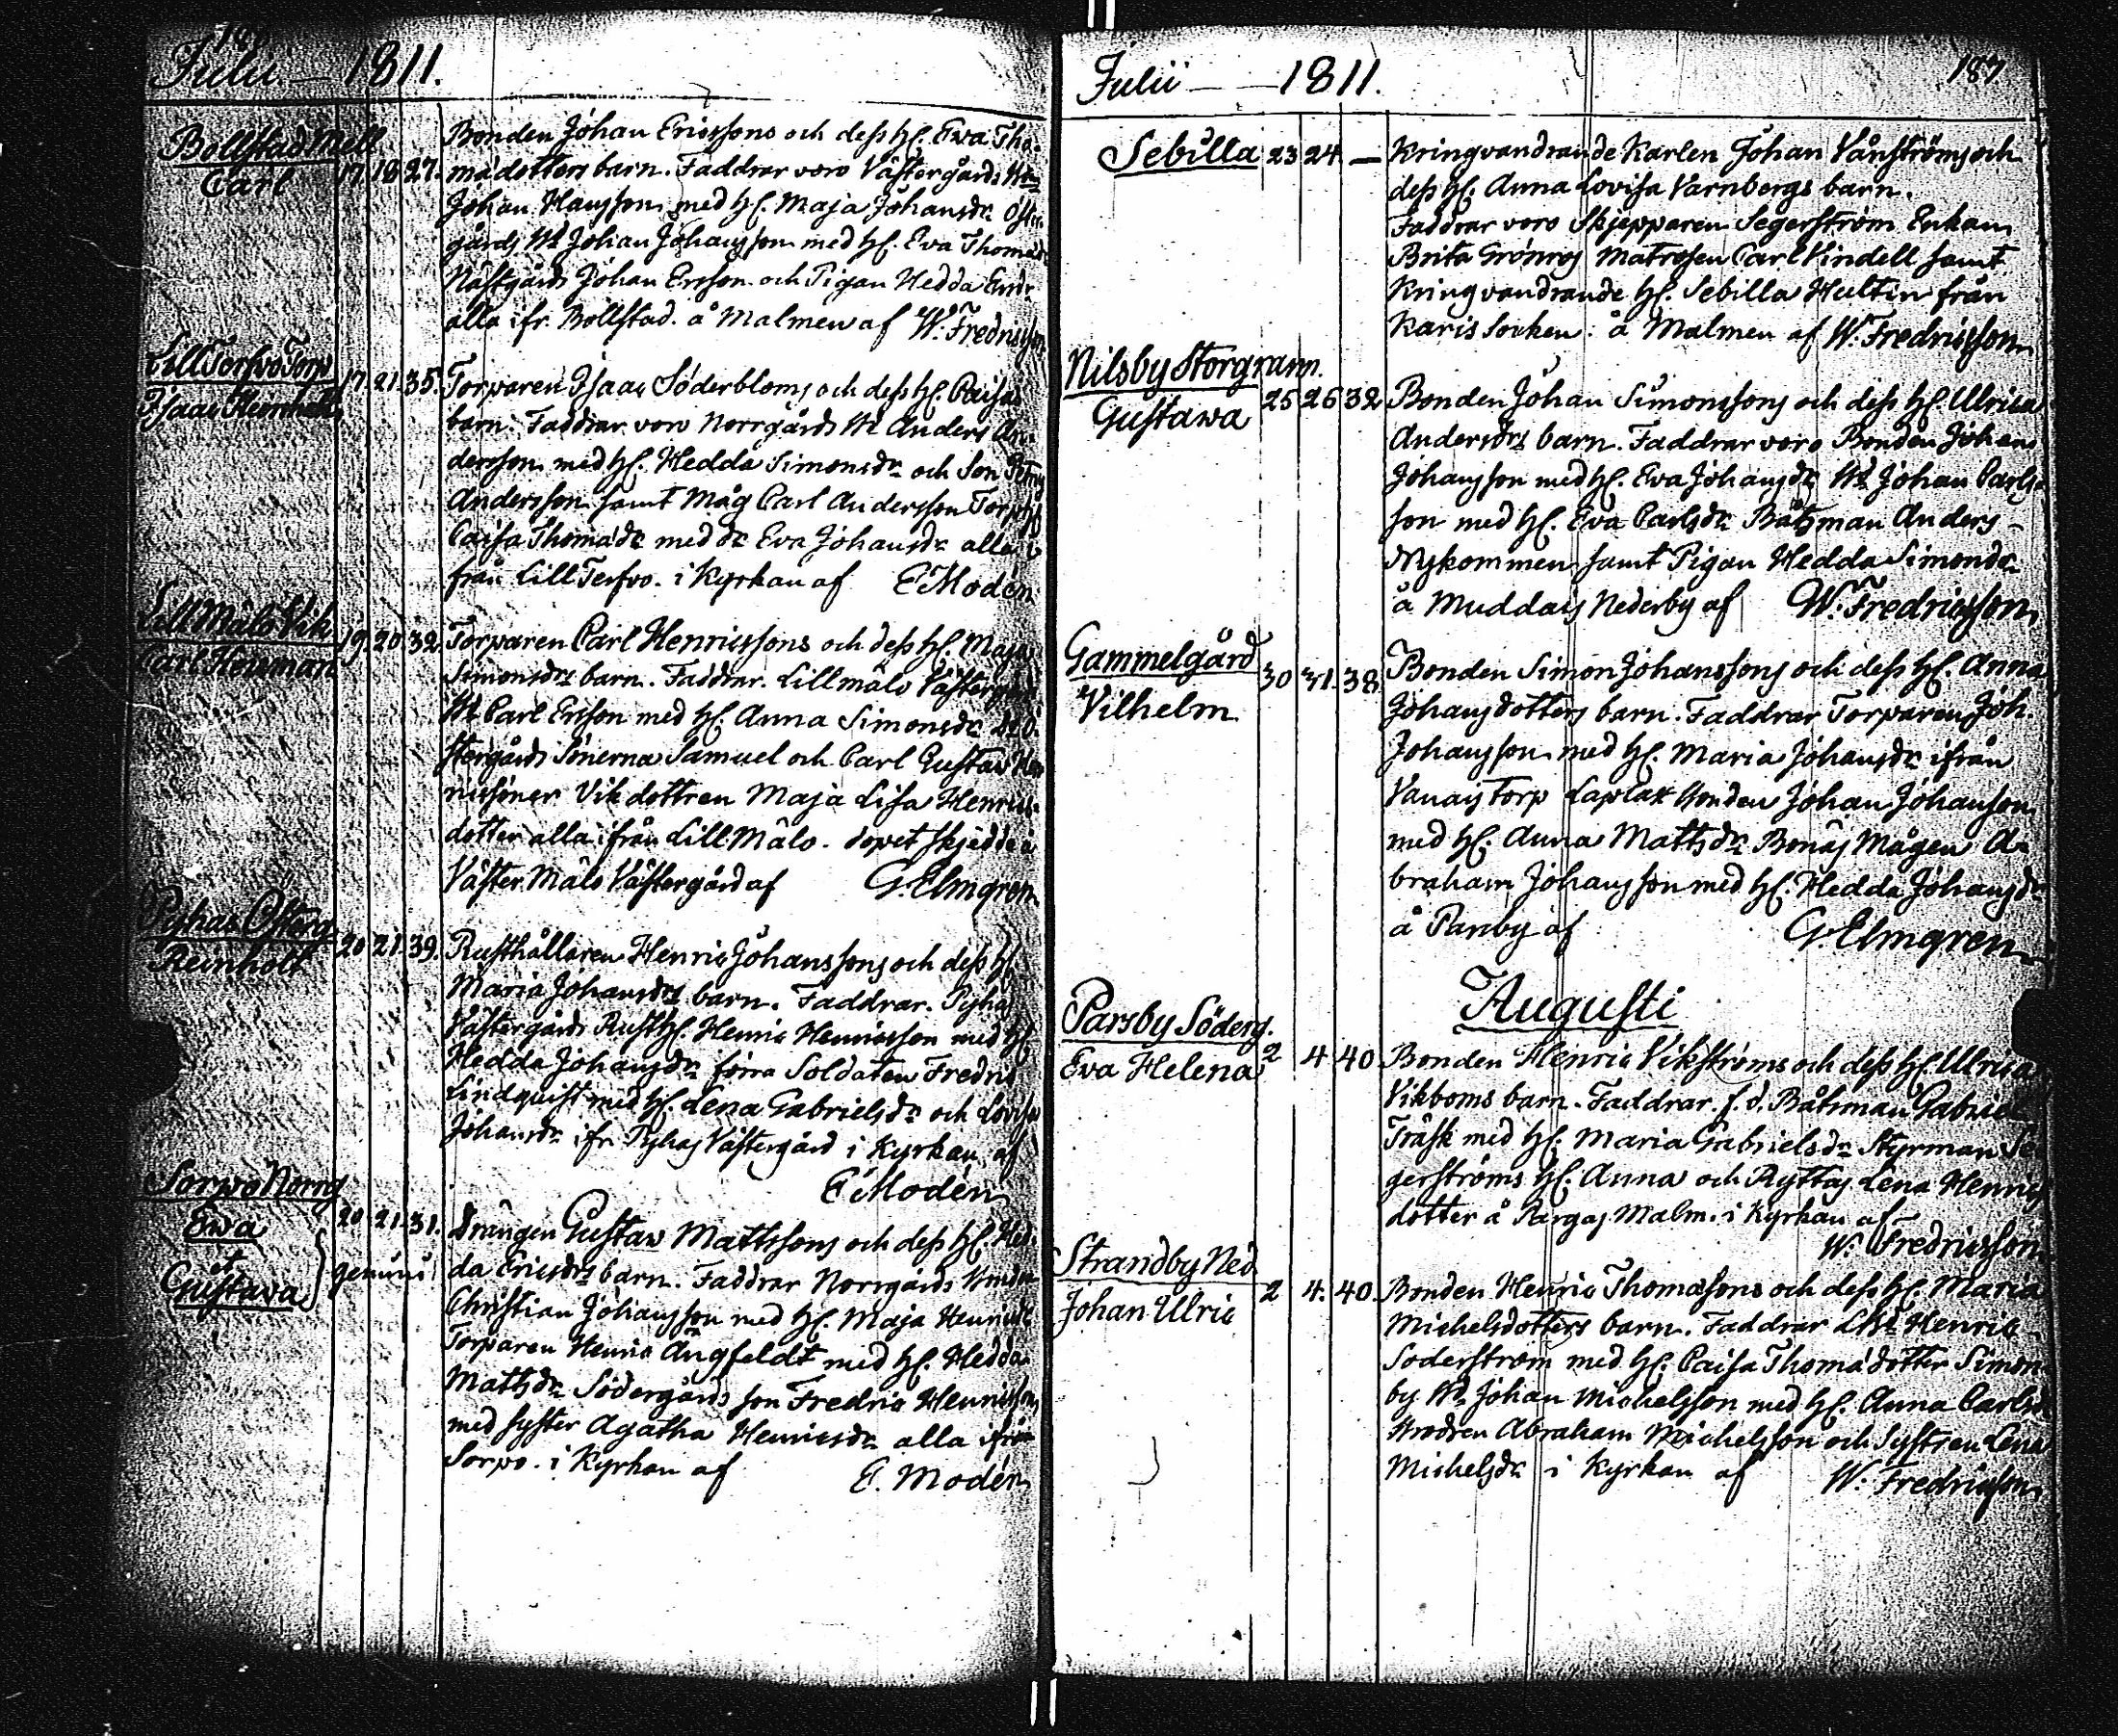 Julii — 1811.
Bollstad Mell
Carl 17. 18. 27.
Bonden Johan Ericssons och dess H. Ewa Tho-
mádotters barn. Faddrar voro Västergårds
Johan Hansson med H. Maja Johansdr Öster-
gårds Bd Johan Johansson med H. Eva Thomadr
Nästgårds Johan Ersson och Pigan Hedda
alla ifr. Bollstad. å Malmen af W. Fredricsson
Lill Terfvo Torp
Isaac Reinholt 17. 21. 35.
Torparen Isaac Söderbloms och dess H. Caisas
barn. Faddrar voro Norrgårds Bd Anders An-
dersson med H. Hedda Simonsdr och Son
Andersson samt Måg Carl Andersson
Caisa Thomadr med dr Eva Johansdr alla
från Lill Terfvo. i Kyrkan af E Modén
Lill Mälö Vik
Carl Herrman 19. 20. 32.
Torparen Carl Henricssons och dess H. Maja
Simonsdrs barn. Faddrar. Lillmälö Västergård
Bd Carl Ersson med H. Anna Simonsdr Ö-
stergårds Sönerna Samuel och Carl Gustav Hen-
ricssöner Vik dottren Maja Lisa Henrics-
dotter alla ifrån Lill Mälö. dopet skjedde i
Väster Mälö Västergård af G. Elmgren
Pyhas Österg.
Reinholt 20 21. 39.
Rusthållaren Henric Johanssons och dess H.
Maria Johansdrs barn. Faddrar. Pyhas
Västergårds Rusth. Henric Henricsson med H.
Hedda Johansdr förra Soldaten Fredric
Lindquist med H. Lena Gabrielsdr och Lovisa
Johansdr ifr. Pyhas Västergård i Kyrkan af
E Modén
Sorpo Norrg
Ewa 20 21. 31.
et
Gustava } gemini
Drängen Gustav Mattssons och dess H. Hed-
da Ericsdrs barn. Faddrar Norrgårds Bonden
Christian Johansson med H. Maja Henricsdr
Torparen Henric Ängfeldt med H. Hedda
Mattsdr Södergårds son Fredric Henricsson
med syster Agatha Henricsdr alla ifrån
Sorpo. i Kyrkan af E. Modén
Julii — 1811. 187
Sebilla 23 24. —
Kringvandrande Karlen Johan Vånströms och
dess H. Anna Lovisa Varnbergs barn.
Faddrar voro Skjepparen Segerström Enkan
Brita Grönros Matrosen Carl Vindell samt
Kringvandrande H. Sebilla Hultin från
Karis Socken. å Malmen af W. Fredricsson
Nilsby Storgrann.
Gustawa 25 26 32
Bonden Johan Simonssons och dess H. Ulrica
Andersdrs barn. Faddrar voro Bonden Johan
Johansson med H. Eva Johansdr Bd Johan Carls-
son med H. Eva Carlsdr Båtsman Anders
Nykommen samt Pigan Hedda Simonsdr
å Muddais Nederby af W. Fredricsson
Gammelgård
Vilhelm 30 31. 38.
Bonden Simon Johanssons och dess H. Anna
Johansdotters barn. Faddrar Torparen Joh.
Johansson med H. Maria Johansdr ifrån
Vanais Torp Laplax Bonden Johan Johanson
med H. Anna Mattsdr Bonäs Mågen A-
braham Johansson med H. Hedda Johansdr
å Parsby af G. Elmgren
Augusti
Parsby Söderg.
Eva Helena 2 4 40
Bonden Henric Vikströms och dess H. Ulrica
Vikboms barn. Faddrar. f.d. Båtsman Gabriel
Träsk med H. Maria Gabrielsdr Styrman Se-
gerströms H. Anna och Ryttas Lena Henrics
dotter å Pargas Malm. i Kyrkan af
W. Fredricsson
Strandby Ned.
Johan Ulric 2 4. 40.
Bonden Henric Thomassons och dess H. Maria
Michelsdotters barn. Faddrar Henric
Söderström med H. Caisa Thomádotter Simon
by Bd Johan Michelsson med H. Anna Carlsd
Brodren Abraham Michelsson och Systren Lena
Michelsdr i Kyrkan af W. Fredricsson